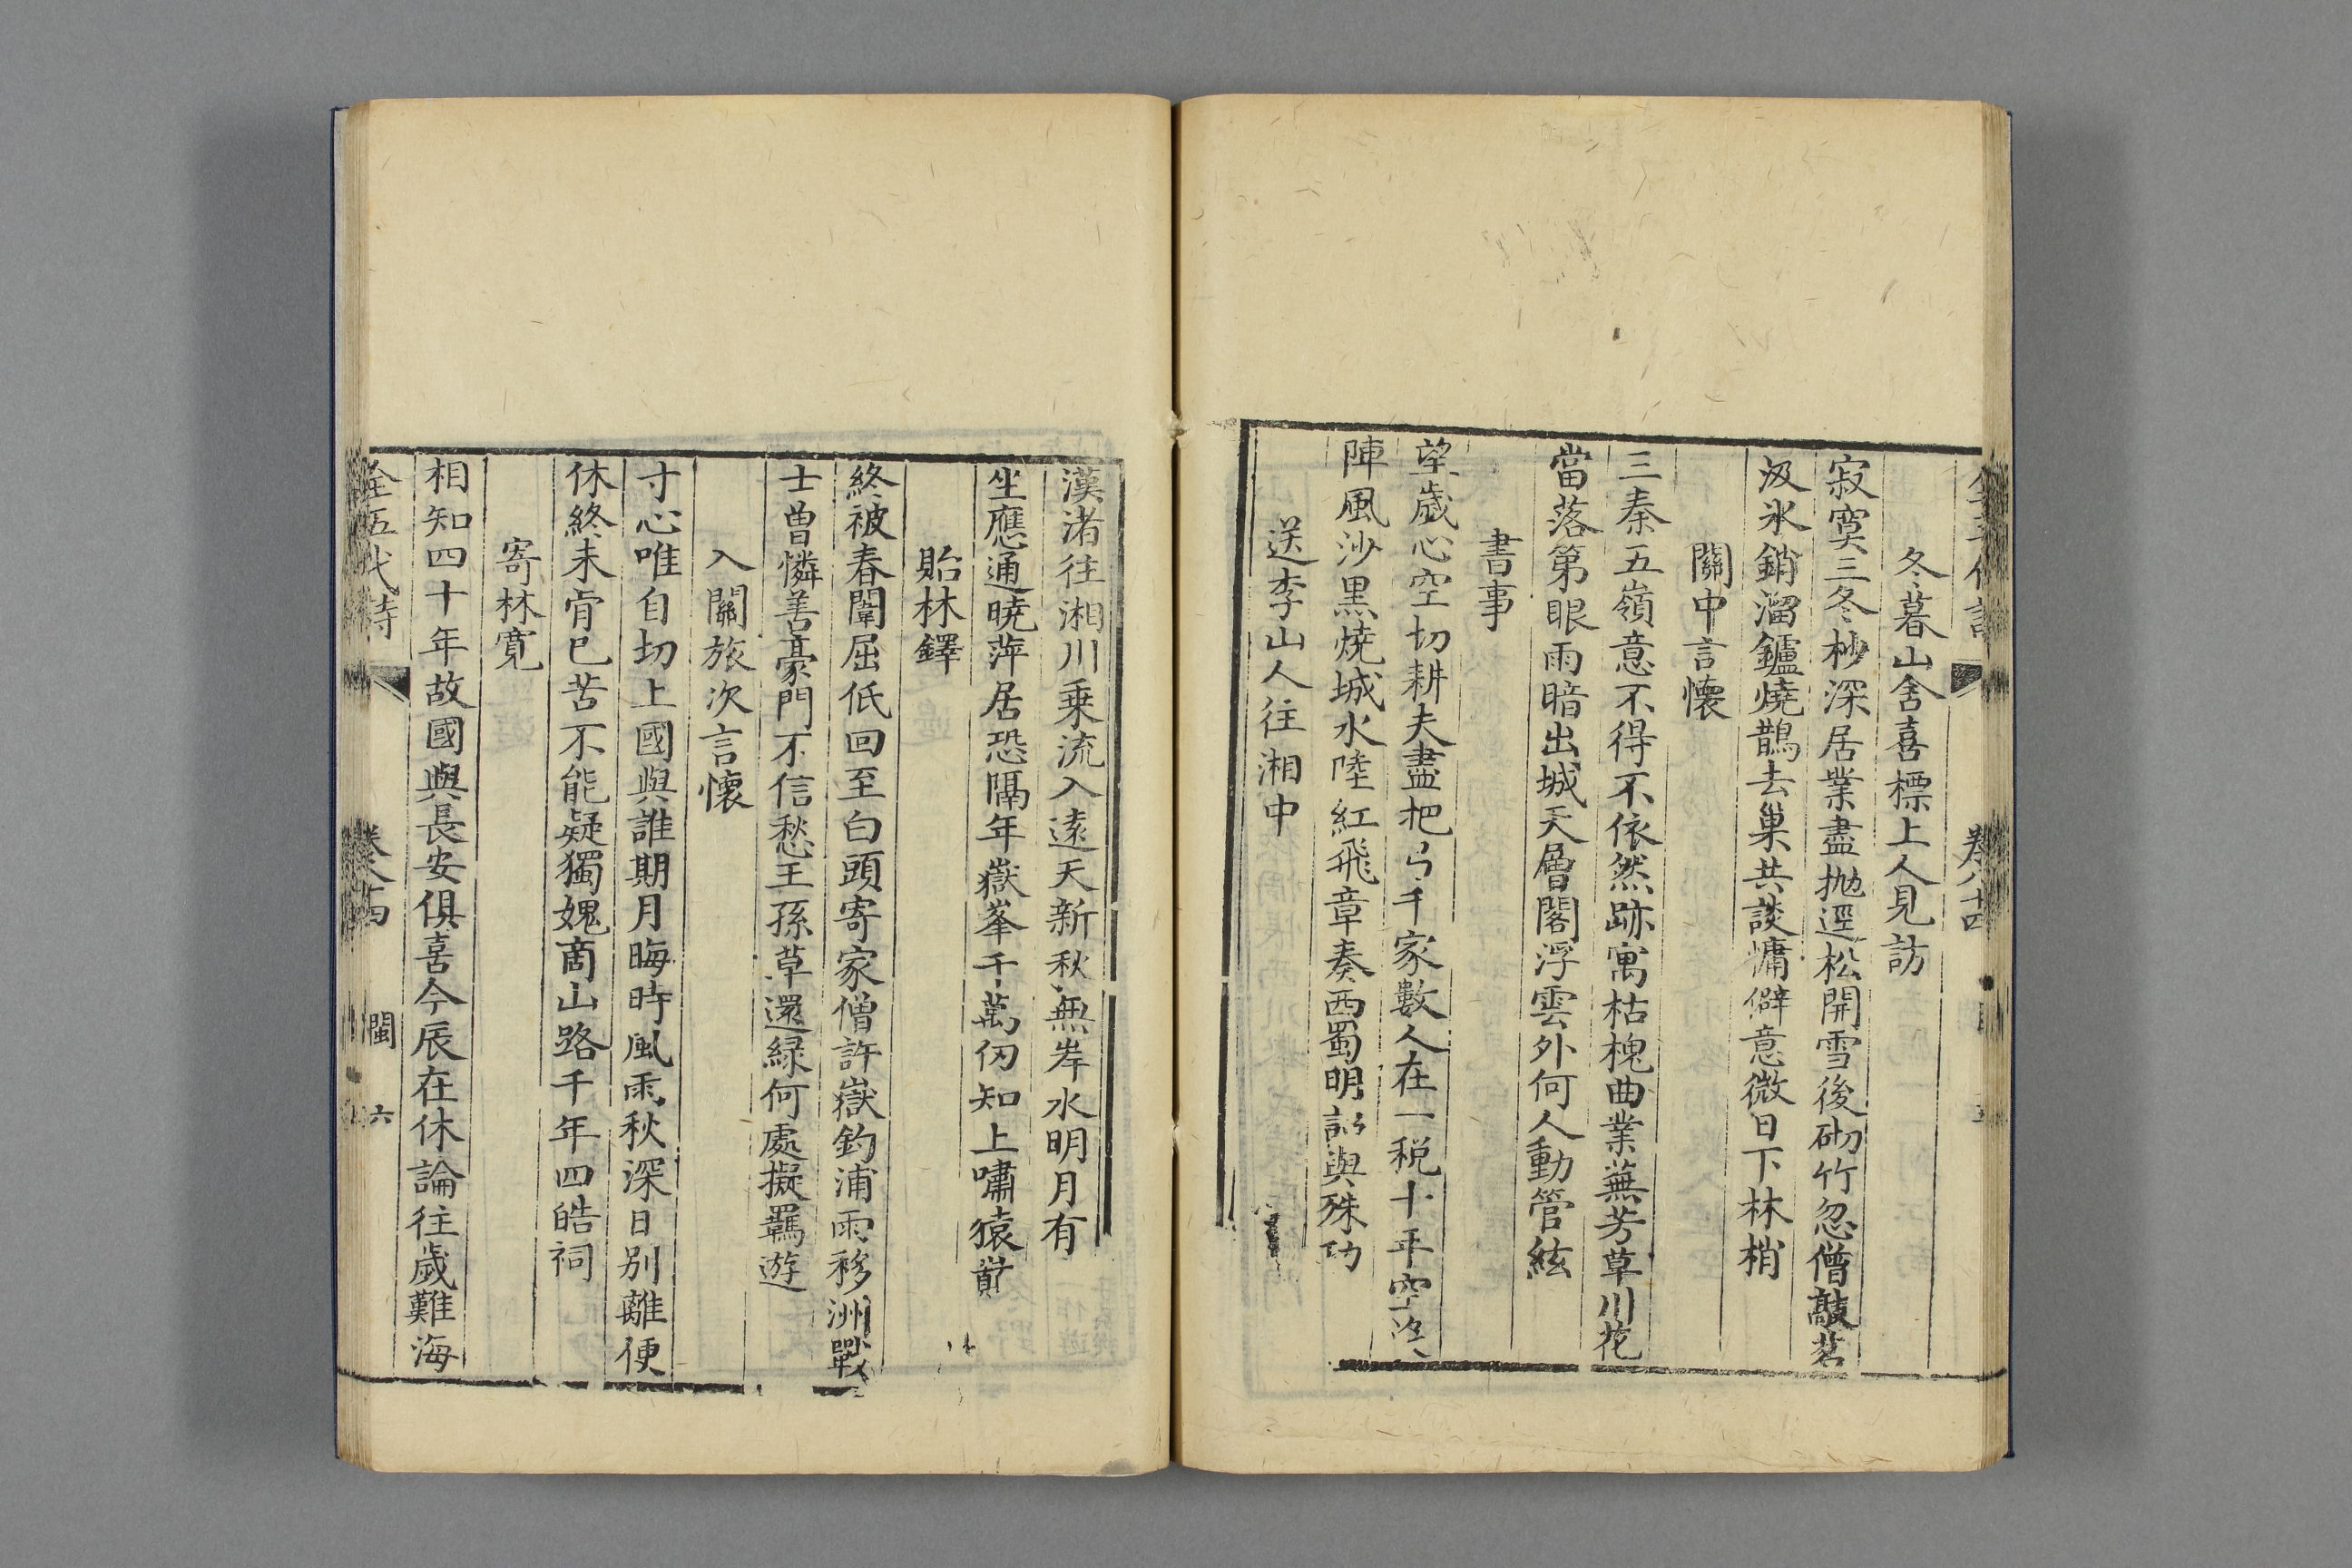 冬暮山舍喜標上人見訪
寂寞三冬杪深居業盡抛逕松開雪後砌竹忽僧敲茗
汲氷銷溜鑪燒鵲去巢共談慵僻意微日下林梢
關中言懷
三秦五嶺意不得不依然跡寓枯槐曲業蕪芳草川花
當落第眼雨暗出城天層閣浮雲外何人動管絃
書事
望歲心空切耕夫盡把弓千家數人在一税十年空
陣風沙黒燒城水陸紅飛章奏西蜀明詔與殊功
送李山人往湘中
卷八十四
漢渚往湘川乗流入遠天新秋無岸水明月有
坐應通曉萍居恐隔年嶽峯千萬仞知上嘯猿巔
貽林鐸
終被春闈屈低回至白頭寄家僧許嶽釣浦雨移洲戰
士曾憐善豪門不信愁王孫草還緑何處擬羈遊
入關旅次言懷
寸心唯自切上國與誰期月晦時風雨秋深日别離便
休終未肯已苦不能疑獨媿商山路千年四皓祠
寄林寛
相知四十年故國與長安俱喜今辰在休論往歲難海
全五代詩
卷八十四
閩
六